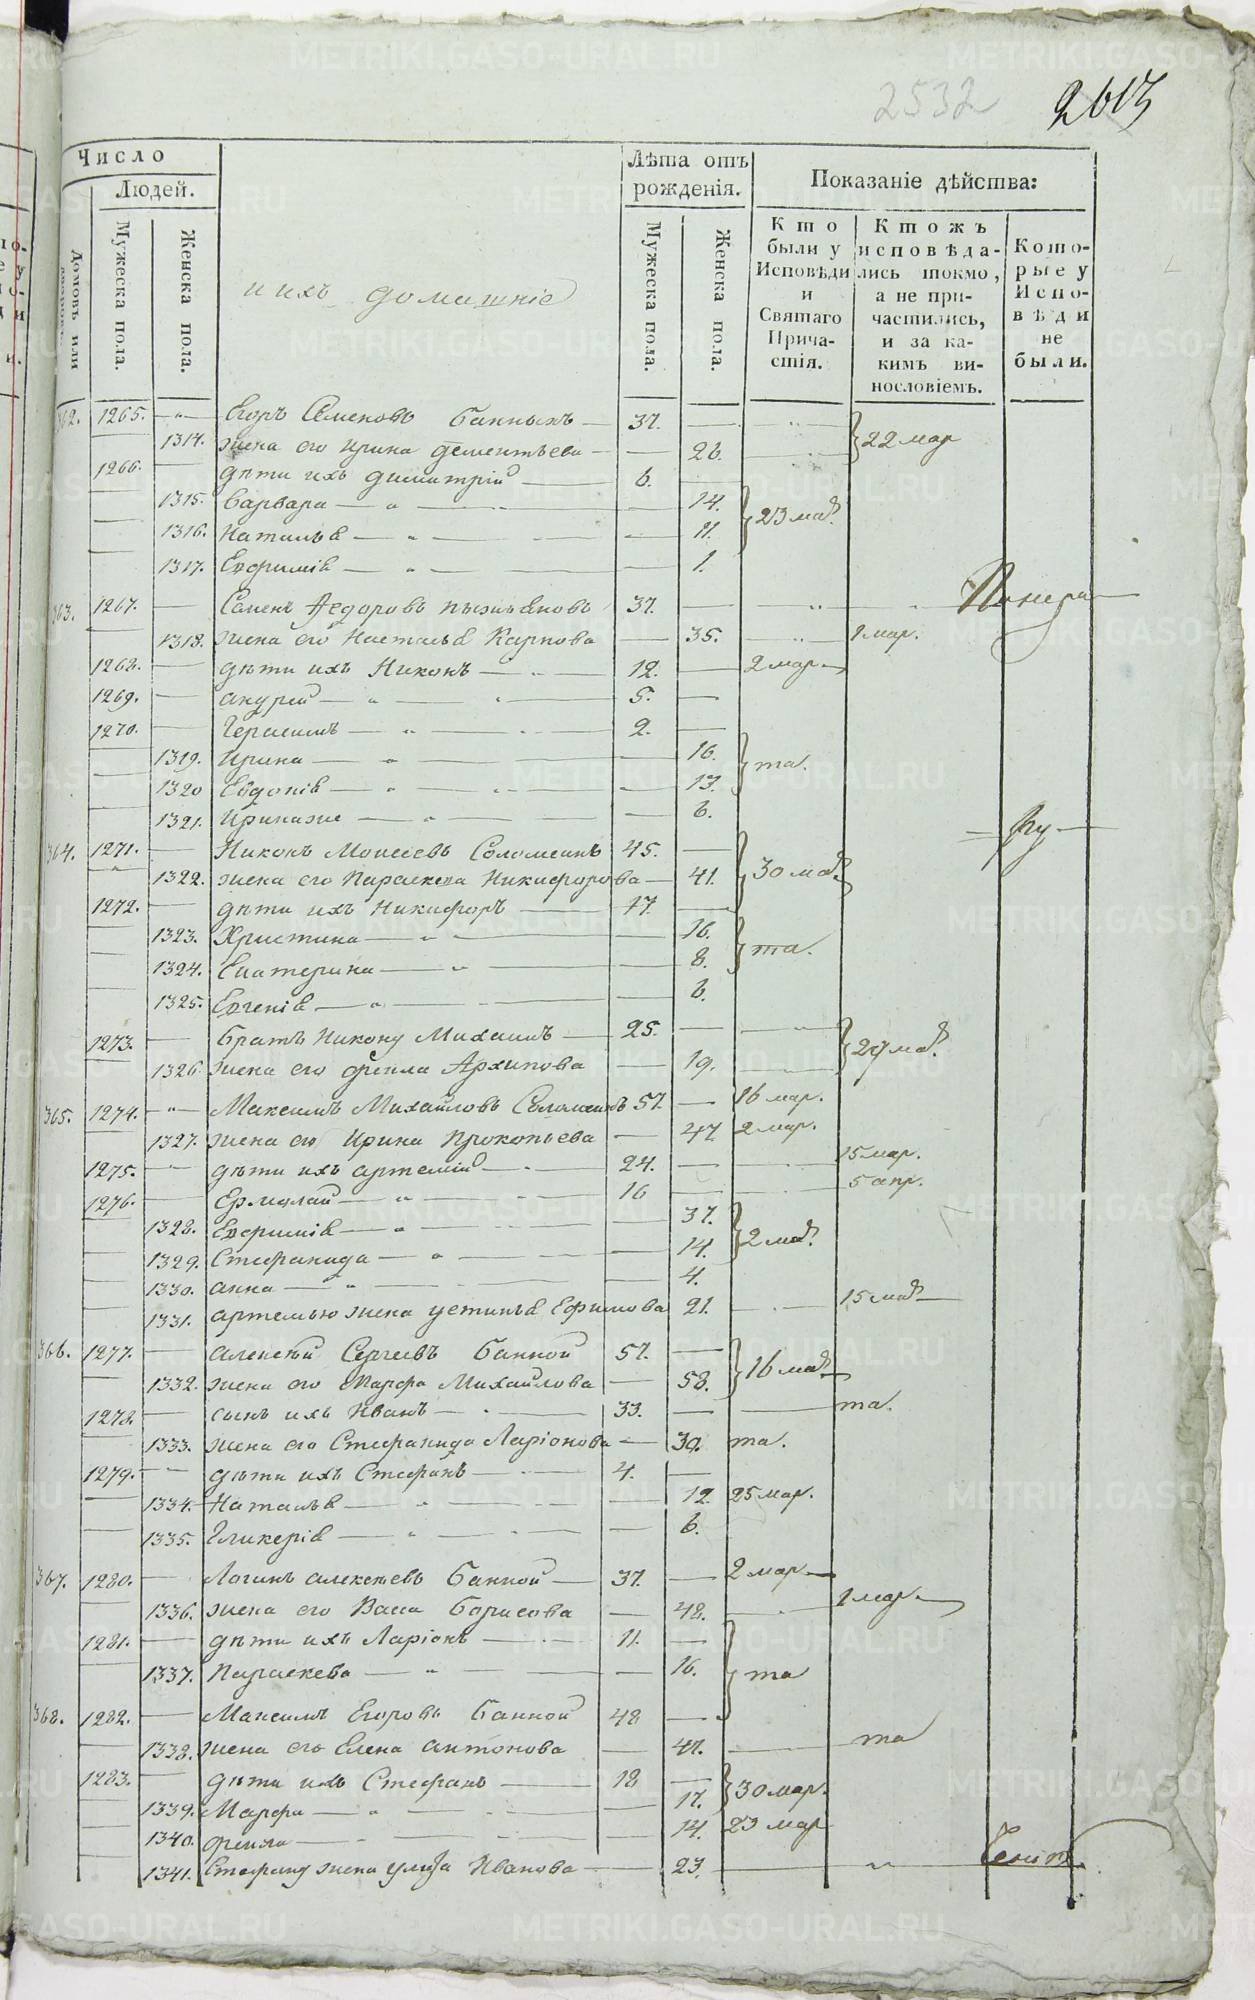 2532
2613
Число
Людей.
Лѣта отъ рожденія.
Показаніе дѣйства:
Домовъ или
Мужеска пола.
Женска пола.
и ихъ домашніе
Мужеска пола.
Женска пола.
Кто были у Исповѣди и Святаго Причастія.
Ктожъ исповѣдались токмо, а не причастились, и за какимъ винословіемъ.
Которые у Исповѣди не были.
362. 1265. Егоръ Семеновъ Банныхъ 37. 22 мар
1314. жена его Ирина Дементьева 26.
1266. дѣти ихъ Димитрій 6.
1315. Варвара 14. 23 мар.
1316. Наталья 11.
1317. Евфимія 1.
363. 1267. Семенъ Ѳедоровъ 37.
1318. жена его Наталья Карпова 35. 2 мар.
1268. дѣти ихъ Никонъ 12. 2 мар
1269. Андрей 5.
1270. Герасимъ 2.
1319. Ирина 16. та.
1320 Евдокія 13.
1321. Ирина же 6.
364. 1271. Никонъ Моисеевъ Соломеинъ 45. 30 мар.
1322. жена его Параскева Никифорова 41.
1272. дѣти ихъ Никифоръ 17.
1323. Христина 16. та.
1324. Екатерина 8.
1325. Евгенія 6.
1273. Братъ Никону Михаилъ 25. 29 мар.
1326. жена его Фекла Архипова 19.
365. 1274. Максимъ Михайловъ Соломеинъ 57. 16 мар.
1327. жена его Ирина Прокопьева 47. 2 мар.
1275. дѣти ихъ Артемій 24. 15 мар.
1276. Ермолай 16 5 апр.
1328. Евфимія 37. 2 мар.
1329. Стефанида 14.
1330. Анна 4.
1331. Артемью жена Устинья Ефимова 21. 15 мар
366. 1277. Алексѣй Сергѣевъ Банной 57. 16 мар
1332. жена его Марфа Михайлова 58.
1278. сынъ ихъ Иванъ 33. та.
1333. жена его Стефанида Ларіонова 30. та.
1279. дѣти ихъ Стефанъ 4.
1334. Наталья 12. 25 мар.
1335. Гликерія 6.
367. 1280. Логинъ Алексѣевъ Банной 37. 2 мар
1336. жена его Васса Борисова 48. 2 мар.
1281. дѣти ихъ Ларіонъ 11.
1337. Параскева 16. та
368. 1282. Максимъ Егоровъ Банной 48
1338. жена его Елена Антонова 47. та
1283. дѣти ихъ Стефанъ 18 30 мар.
1339. Марфа 17.
1340. Фекла 14. 23 мар
1341. Стефану жена Улита Иванова 23.